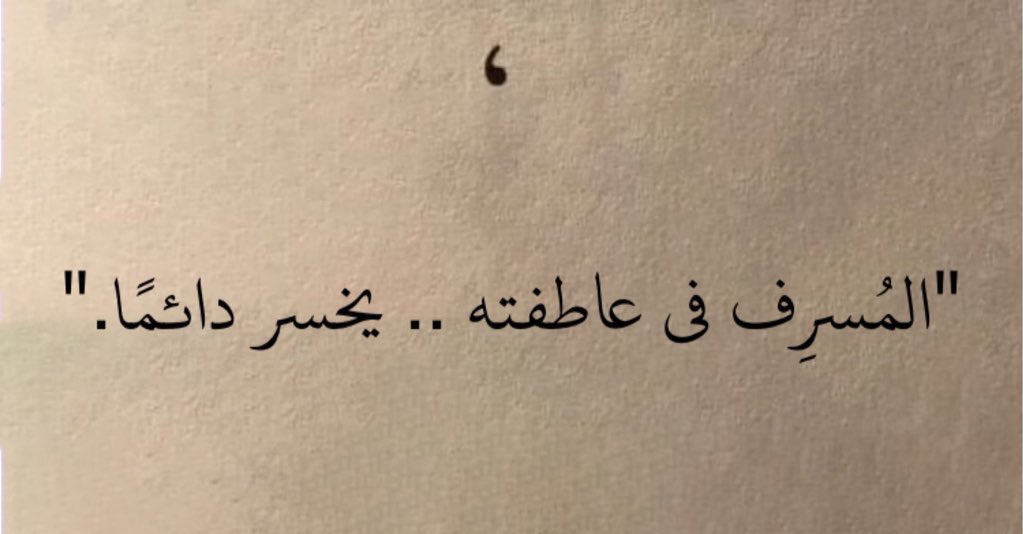 ‘
"المُسرِف فى عاطفته .. يخسر دائمًا."